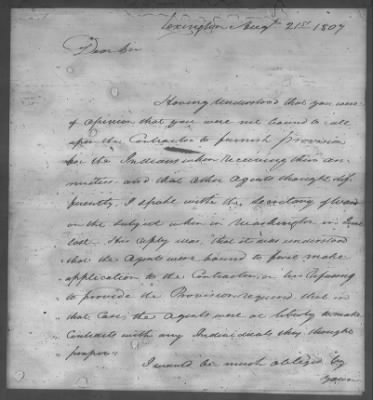 Lexington Augt. 21st 1807
Dear Sir
Having understood that you were
of opinion that you were not bound to call
upon the Contractor to furnish provision
for the Indians when receiving their an-
nuities and that other Agents thought dif-
ferently, I spoke with the Secretary of War
on the subject when in Washington in June
last. His reply was, that it was understood
that the Agents were bound to first make
application to the Contractor, on his refusing
to provide the Provision required that in
that case, the Agents were at liberty to make
Contracts with any Individuals they thought
proper.
I would be much obliged by
your